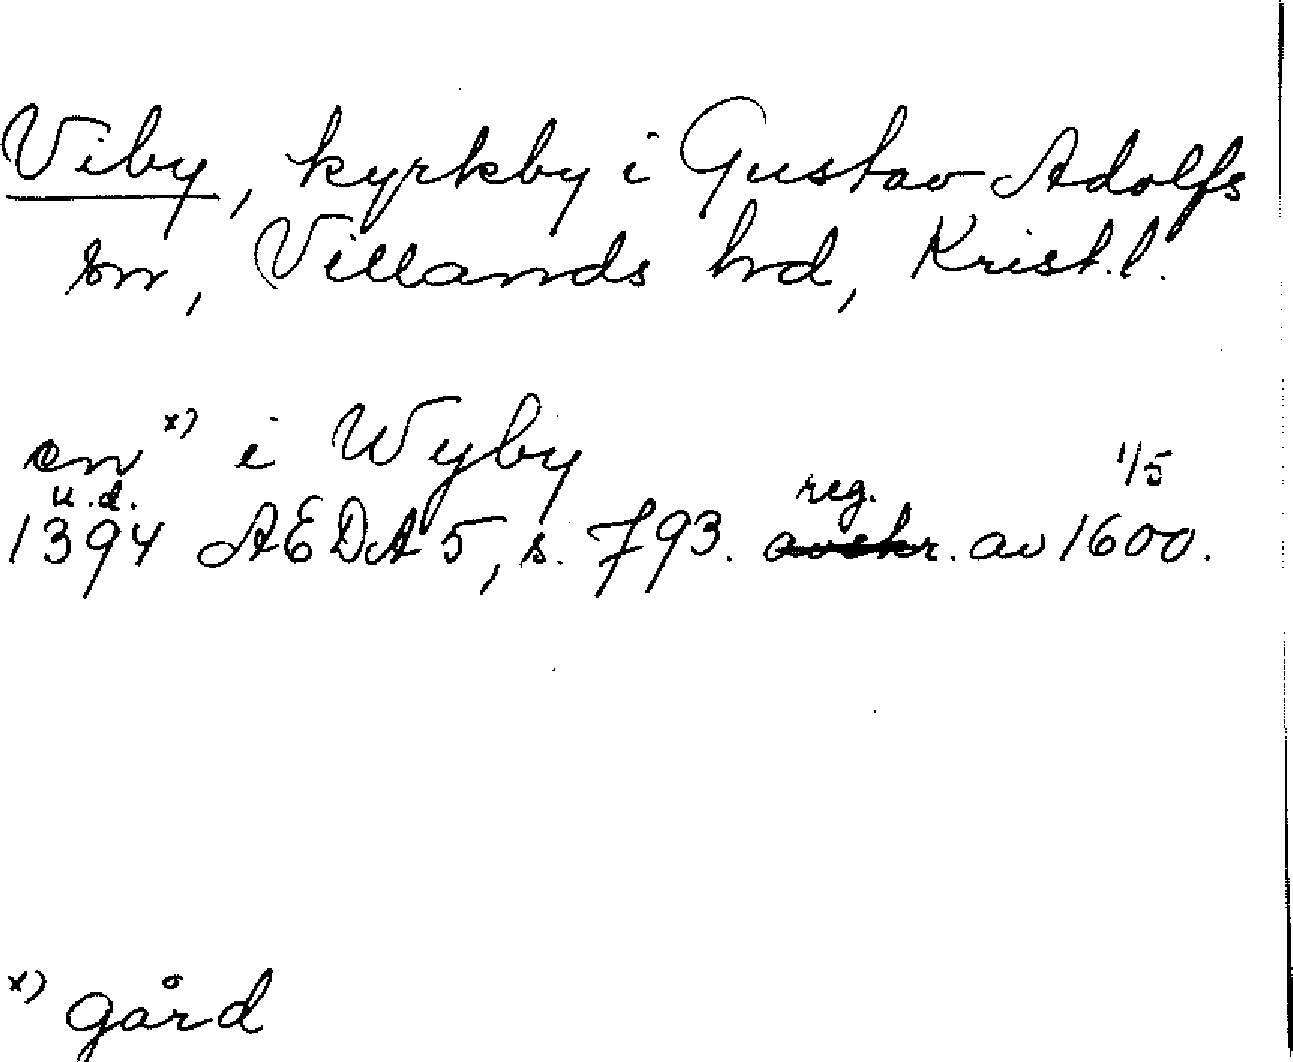 Viby, kyrkby i Gustav Adolfs
sn, Villands hd, Krist.l.
en x) i Wyby
u.d. reg. 1/5
1394 AEDA 5, s. 793. avskr. av 1600.
x) gård